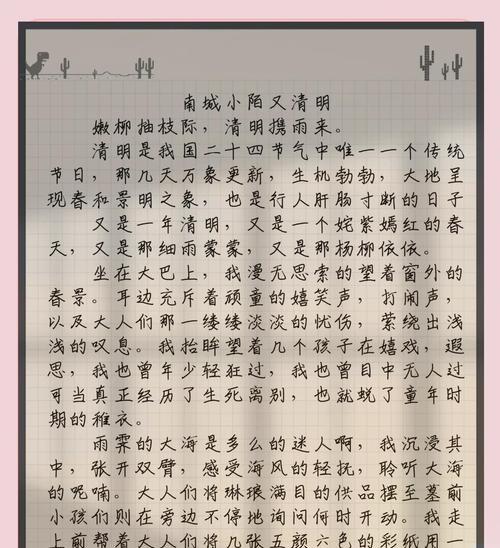 南城小陌又清明
嫩柳抽枝际，清明携雨来。
清明是我国二十四节气中唯一一个传统
节日，那几天万象更新，生机勃勃，大地呈
现春和景明之象，也是行人肝肠寸断的日子
又是一年清明，又是一个姹紫嫣红的春
天，又是那细雨蒙蒙，又是那杨柳依依。
坐在大巴上，我漫无思索的望着窗外的
春景。耳边充斥着顽童的嬉笑声，打闹声，
以及大人们那一缕缕淡淡的忧伤，萦绕出浅
浅的叹息。我抬眸望着几个孩子在嬉戏，遐
思，我也曾年少轻狂过，我也曾目中无人过
可当真正经历了生死离别，也就蜕了童年时
期的稚衣。
雨霁的大海是多么的迷人啊，我沉浸其
中，张开双臂，感受海风的轻抚，聆听大海
的呢喃。大人们将琳琅满目的供品摆至墓前
小孩们则在旁边不停地询问何时开动。我走
上前帮着大人们将几张五颜六色的彩纸用一